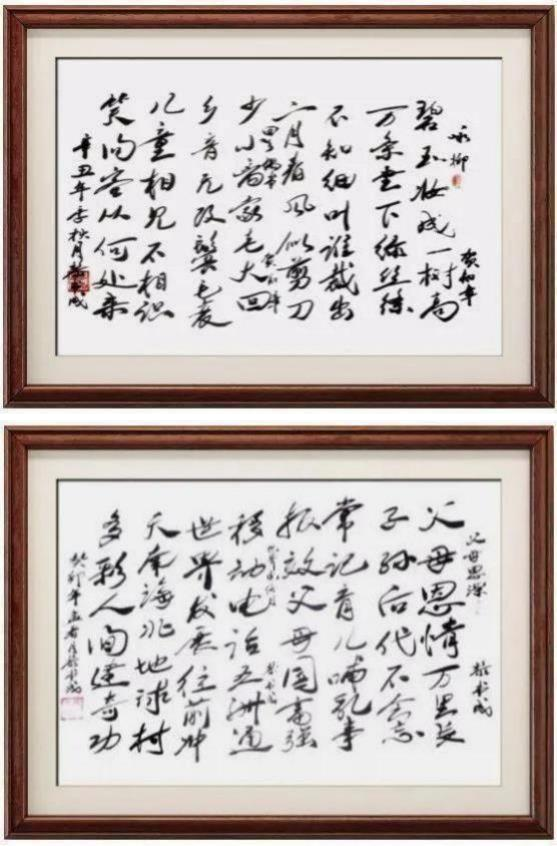 咏柳
贺知章
碧玉妆成一树高
万条垂下绿丝绦
不知细叶谁裁出
二月春风似剪刀
贺知章
少小离家老大回
乡音无改鬓毛衰
儿童相见不相识
笑问客从何处来
辛丑年季秋月
父母恩深
父母恩情万里
子孙后代不忘
常记育儿哺乳事
报效父母国富强
移动电话五洲通
世界发展往前冲
天南海北地球村
多彩人间建奇功
癸卯年孟春月